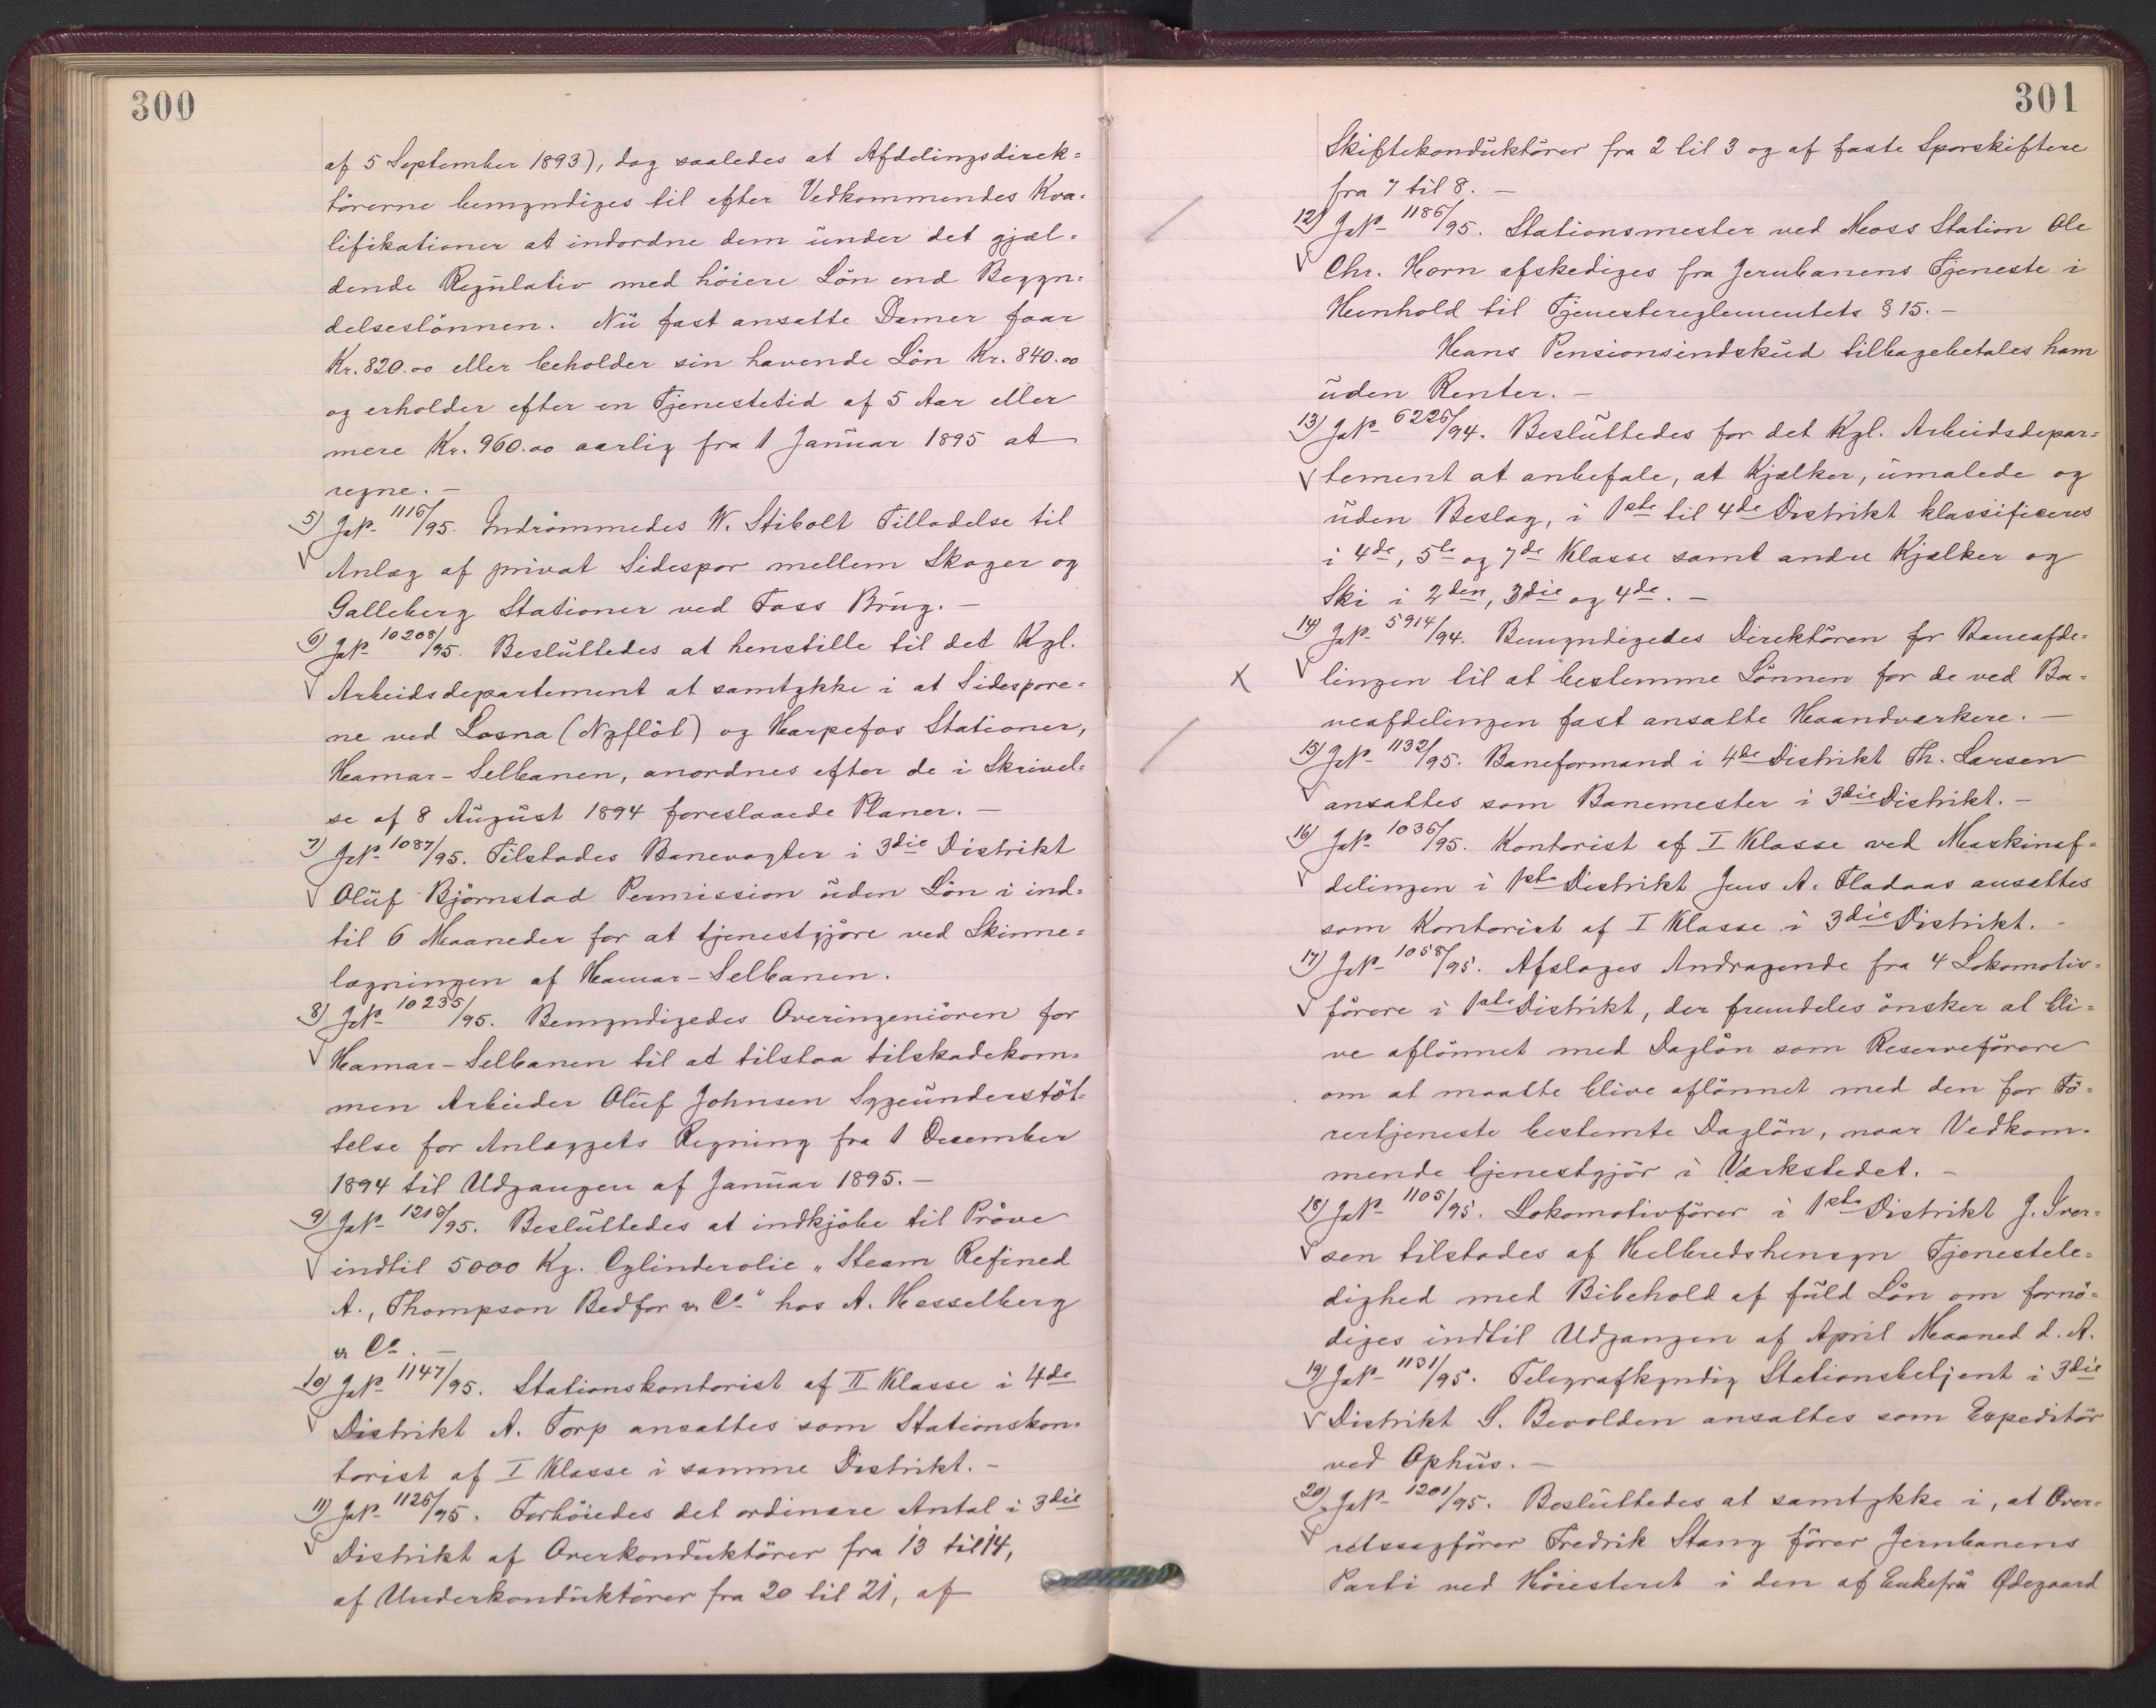 300
af 5 September 1893), dog saaledes at Afdelingsdirek=
törerne bemyndiges til efter Vedkommendes Kva=
lifikationer at indordne dem under det gjæl=
dende Regulativ med höiere Lön end Begyn=
delseslönnen. Nu fast ansatte Damer faar
Kr. 820.00 eller beholder sin havende Lön Kr. 840.00
og erholder efter en Tjenestetid af 5 Aar eller
mere Kr. 960.00 aarlig fra 1 Januar 1895 at
regne. —
5) JN- 1116/95. Indrömmedes W. Stibolt Tilladelse til
Anlæg af privat Sidespor mellem Skoger og
Galleberg Stationer ved Foss Brug. —
6) JN- 10208/95. Besluttedes at henstille til det Kgl.
Arbeidsdepartement at samtykke i at Sidespore=
ne ved Losna (Nyflöt) og Harpefos Stationer,
Hamar-Selbanen, anordnes efter de i Skrivel=
se af 8 August 1894 foreslaaede Planer. —
7) JN- 1087/95. Tilstodes Banevogter i 3die Distrikt
Oluf Björnstad Permission uden Lön i ind=
til 6 Maaneder for at tjenestgjöre ved Skinne=
lægningen af Hamar-Selbanen.
8) JN- 10235/95. Bemyndigedes Overingeniören for
Hamar-Selbanen til at tilstaa tilskadekom=
men Arbeider Oluf Johnsen Sygeunderstöt=
telse for Anlæggets Regning fra 1 Desember
1894 til Udgangen af Januar 1895. —
9) JN- 1216/95. Besluttedes at indkjöbe til Pröve
indtil 5000 Kg. Cylinderolie „Steam Refined
A., Thompson Bedfor & Co" hos A. Hesselberg
& Co. —
10) JN- 1147/95. Stationskontorist af II Klasse i 4de
Distrikt A. Torp ansattes som Stationskon=
torist af I Klasse i samme Distrikt. -
11) JN- 1126/95. Forhöiedes det ordinære Antal i 3die
Distrikt af Overkonduktörer fra 13 til 14,
af Underkonduktörer fra 20 til 21, af
301
Skiftekonduktörer fra 2 til 3 og af faste Sporskiftere
fra 7 til 8. —
12) JN- 1186/95. Stationsmester ved Moss Station Ole
Chr. Horn afskediges fra Jernbanens Tjeneste i
Henhold til Tjenestereglementets § 15. —
Hans Pensionsindskud tilbagebetales ham
uden Renter. —
13) JN- 6226/94. Besluttedes for det Kgl. Arbeidsdepar=
tement at anbefale, at Kjælker, umalede og
uden Beslag, i 1ste til 4de Distrikt klassificeres
i 4de, 5te og 7de Klasse samt andre Kjælker og
Ski i 2den, 3die og 4de. —
14) JN- 5914/94. Bemyndigedes Direktören for Baneafde=
lingen til at bestemme Lönnen for de ved Ba=
neafdelingen fast ansatte Haandværkere. —
15) JN- 1132/95. Baneformand i 4de Distrikt Th. Larsen
ansattes som Banemester i 3die Distrikt. —
16) JN- 1036/95. Kontorist af I Klasse ved Maskinaf=
delingen i 1ste Distrikt Jens A. Fladaas ansattes
som Kontorist af I Klasse i 3die Distrikt. -
17) JN- 1058/95. Afsloges Andragende fra 4 Lokomotiv=
förere i 1ste Distrikt, der fremdeles önsker at bli=
ve aflönnet med Daglön som Reserveförere
om at maatte blive aflönnet med den for Fö=
rertjeneste bestemte Daglön, naar Vedkom=
mende tjenestgjör i Værkstedet. -
18) JN- 1105/95. Lokomotivförer i 1ste Distrikt J. Iver=
sen tilstodes af Helbredshensyn Tjenestele=
dighed med Bibehold af fuld Lön om fornö=
diges indtil Udgangen af April Maaned d. A.
19) JN- 1131/95. Telegrafkyndig Stationsbetjent i 3die
Distrikt S. Bevolden ansattes som Expeditör
ved Ophus. —
20) JN- 1201/95. Besluttedes at samtykke i, at Over=
retssagförer Fredrik Stang förer Jernbanens
Parti ved Höiesteret i den af Enkefru Ødegaard